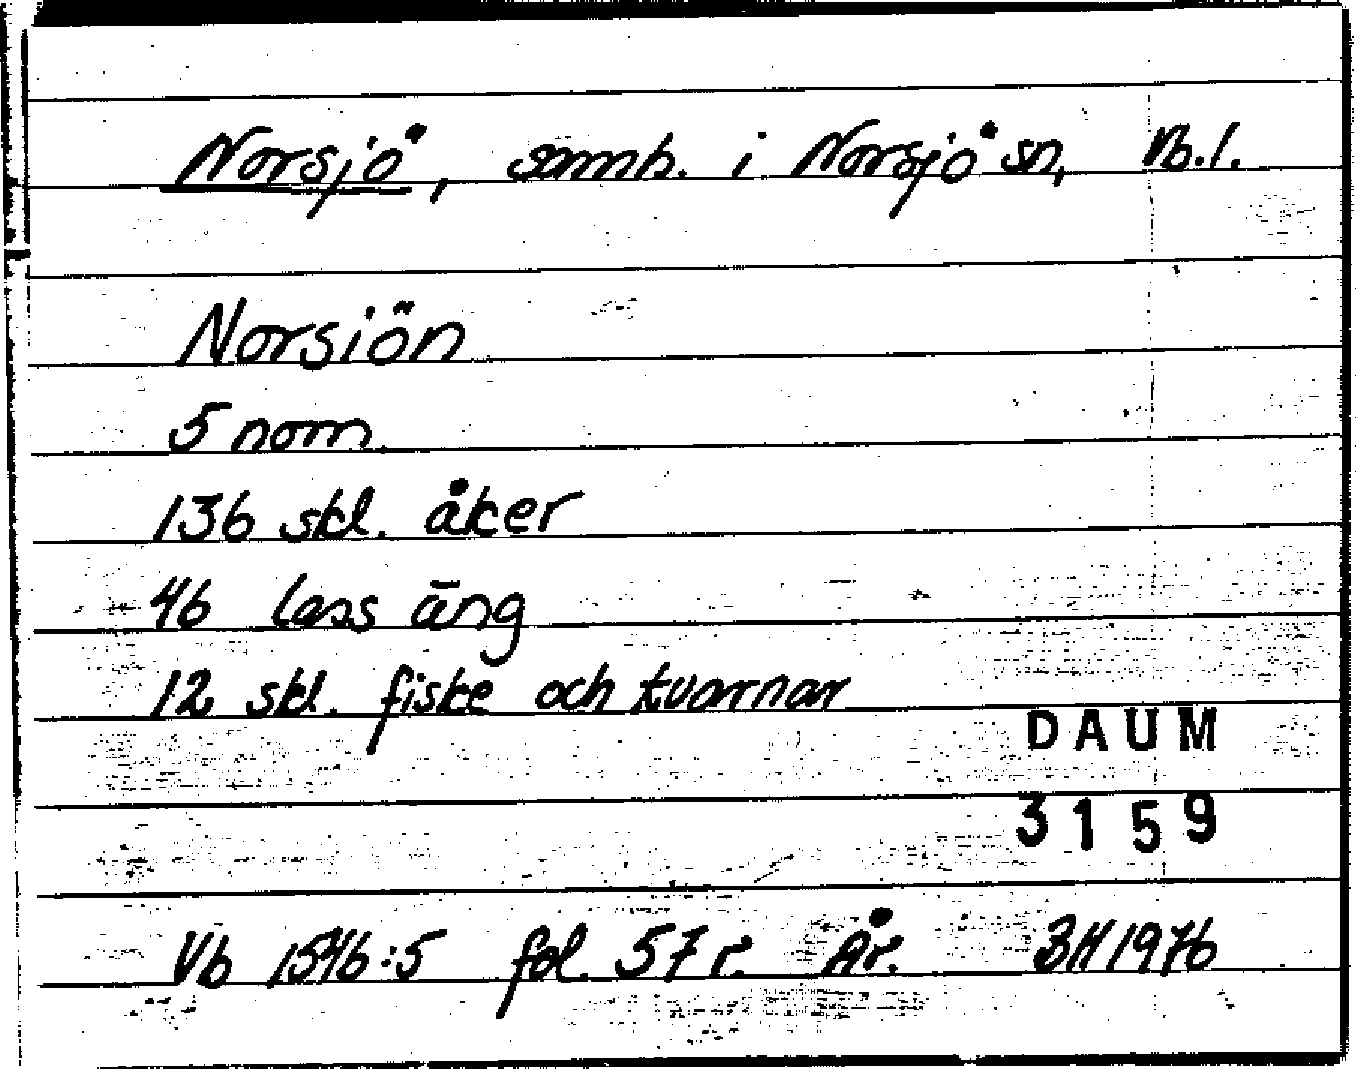 Norsjö, samh. i Norsjö sn, Vb.l.
Norsiön
5 nom
136 skl. åker
46 lass äng
12 skl. fiske och kvarnar
DAUM
3159
Vb 1546:5 fol. 57 r. År. BH 1976